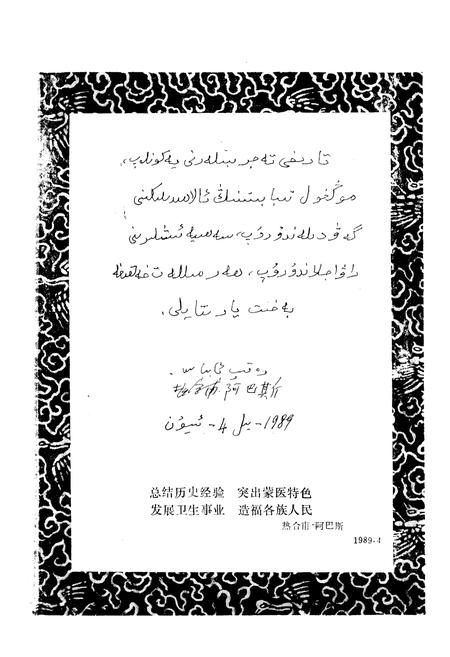 تارىخىي تەجرىبىلەرنى يەكۈنلەپ،
موڭغۇل تىبابىتىنىڭ ئالاھىدىلىكىنى
گەۋدىلەندۈرۈپ، سەھىيە ئىشلىرىنى
راۋاجلاندۇرۇپ، ھەر مىللەت خەلقىغە
بەخت يارىتايلى.
ئابباس.
阿巴斯
1989-يىل 4-ئىيۇن
总结历史经验　突出蒙医特色
发展卫生事业　造福各族人民
热合甫·阿巴斯
1989-4